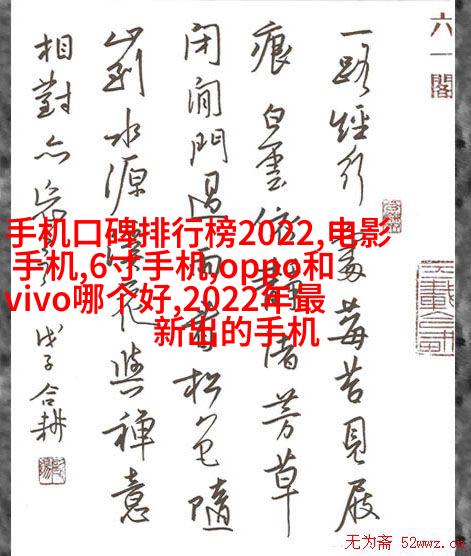 六一閣
一路經行處莓苔見屐
痕白雲依静渚芳草
闭闲門過雨看松色隨
山到水源溪花與禅意
相對亦忘言
戊子合耕
手机口碑排行榜2022,电影
手机,6寸手机,oppo和
vivo哪个好,2022年最
新出的手机
无为斋 52wwz.c